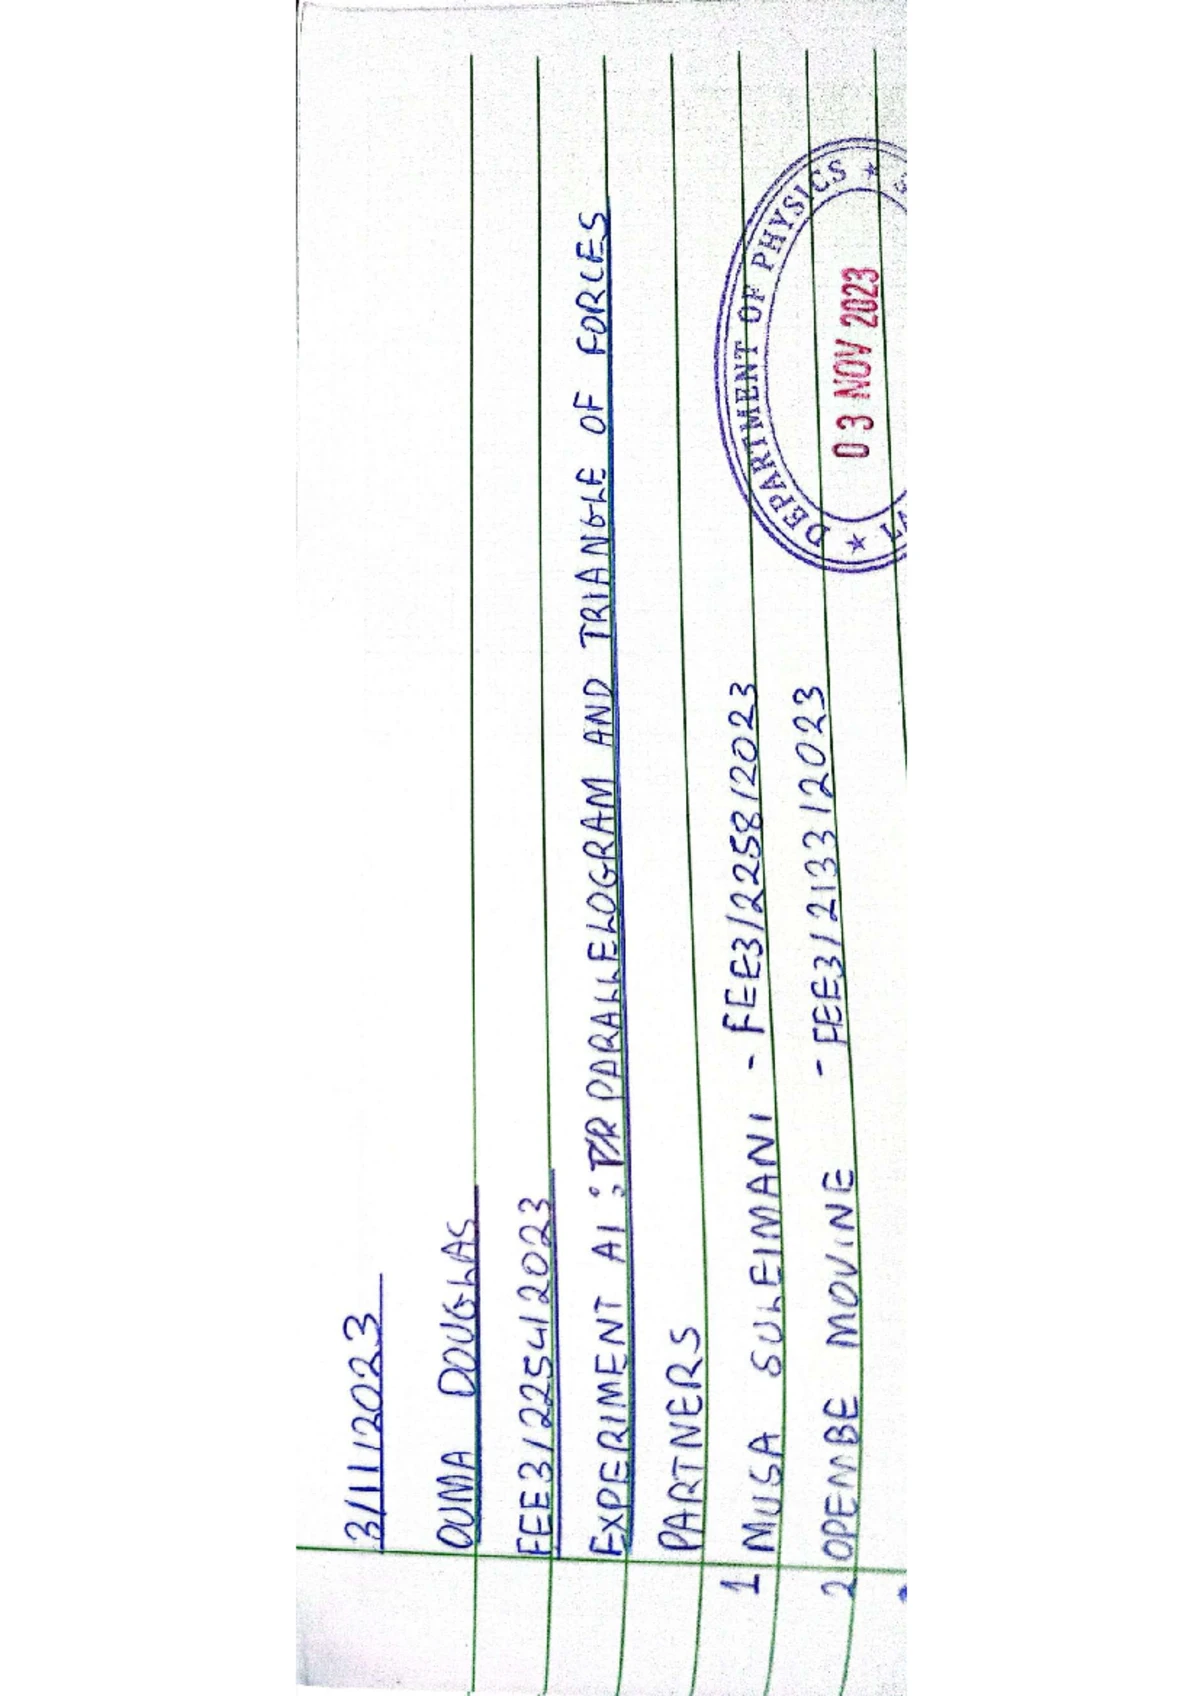 3/11/2023
OUMA DOUGLAS
FEE3/2254/2023
EXPERIMENT A1 : PARALLELOGRAM AND TRIANGLE OF FORCES
PARTNERS
1 MUSA SULEIMANI - FEE3/2258/2023
2 OPEMBE MOVINE - FEE3/2133/2023
★ DEPARTMENT OF PHYSICS ★
03 NOV 2023